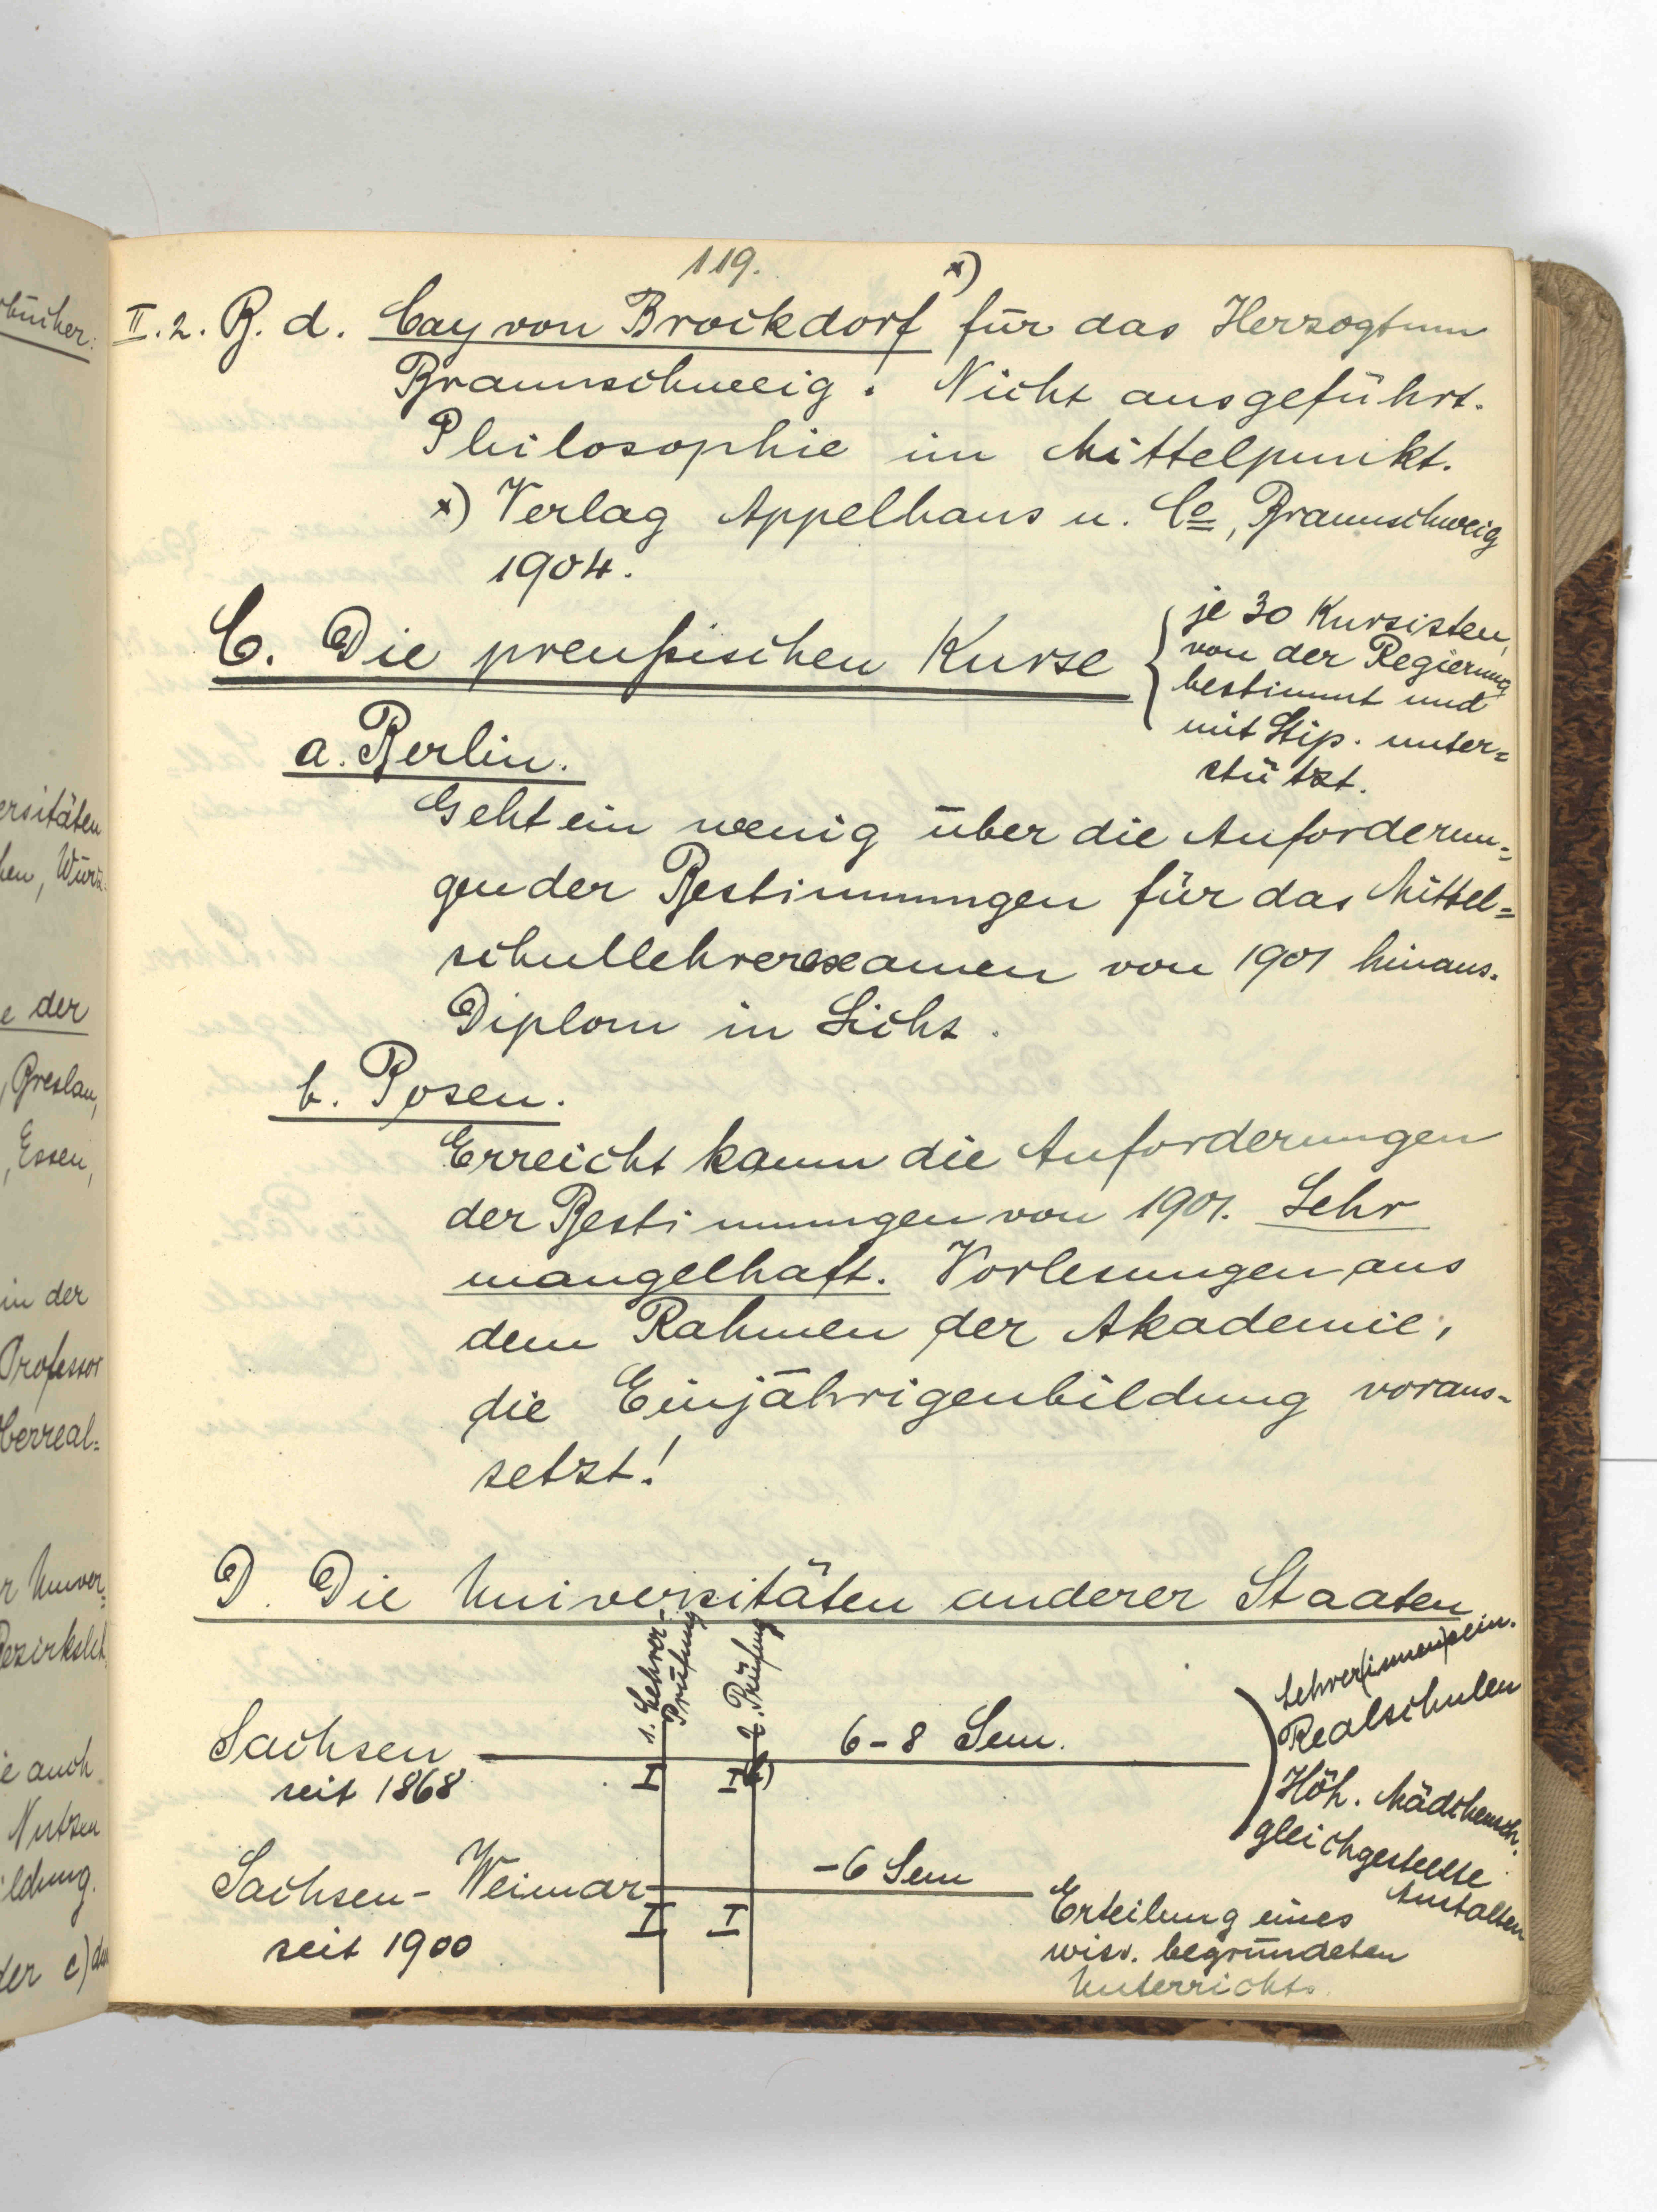 bücher:
ersitäten
hen, Würz
e der
, Breslau,
, Essen,
in der
Professor
berreal=
r Univer=
Bezirksleh
ie auch
Nutzen
ildung.
der c) das
119.
II. 2. B. d. Cay von Brockdorf x) für das Herzogtum
Braunschweig. Nicht ausgeführt.
Philosophie im Mittelpunkt.
x) Verlag Appelhans u. Co, Braunschweig
1904.
C. Die preußischen Kurse
je 30 Kursisten,
von der Regierung
bestimmt und
mit Stip. unter=
stützt.
a. Berlin.
Geht ein wenig über die Anforderun=
gen der Bestimmungen für das Mittel=
schullehrerexamen von 1901 hinaus.
Diplom in Sicht.
b. Posen.
Erreicht kaum die Anforderungen
der Bestimmungen von 1901. Sehr
mangelhaft. Vorlesungen aus
dem Rahmen der Akademie,
die Einjährigenbildung voraus-
setzt!
D. Die Universitäten anderer Staaten
1. Lehrer-
Prüfung
2. Prüfung
Sachsen
seit 1868
I
I
6-8 Sem.
Lehrer(innen)sem.
Realschulen
Höh. Mädchensch.
gleichgestellte
Anstalten
Sachsen-Weimar
seit 1900
I
I
-6 Sem
Erteilung eines
wiss. begründeten
Unterrichts.